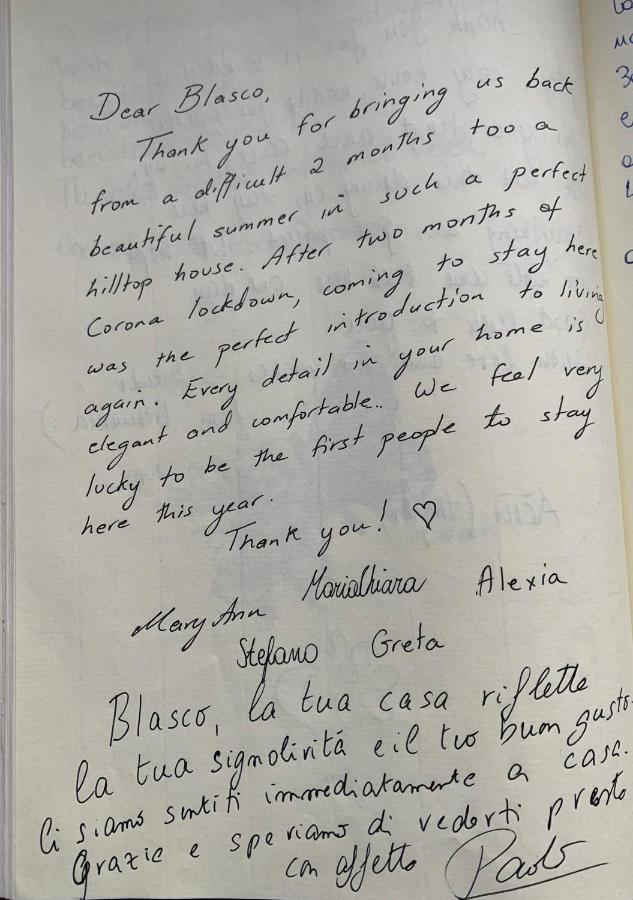 Dear Blasco,
Thank you for bringing us back
from a difficult 2 months too a
beautiful summer in such a perfect
hilltop house. After two months of
Corona lockdown, coming to stay here
was the perfect introduction to living
again. Every detail in your home is
elegant and comfortable.. We feel very
lucky to be the first people to stay
here this year.
Thank you! ♡
MariaChiara Alexia
Mary Ann
Stefano Greta
Blasco, la tua casa riflette
la tua signolirità e il tuo buon gusto.
Ci siamo sentiti immediatamente a casa.
Grazie e speriamo di vederti presto
con affetto Paolo